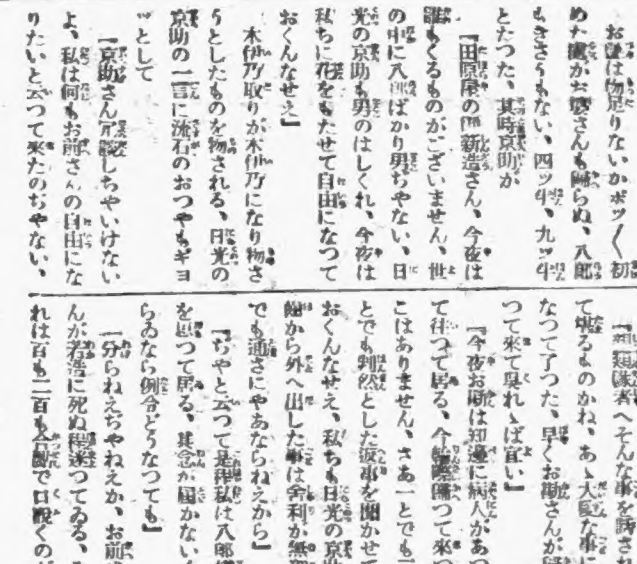 お辭は物足りないかポツ〳〵初
めた處がお婆さんも歸らぬ、八郎
もきさうもない、四ツ半、九ツ半
とたつた、其時京助が
『田原屋の四新造さん、今夜は
誰もくるものがございません、世
の中に八郎ばかり男ぢやない、日
光の京助も男のはしくれ、今夜は
私ちに花をもたせて自由になつて
おくんなせえ』
木伊乃取りが木伊乃になり物さ
うとしたものを物される、日光の
京助の一言に流石のおつやもギヨ
ツとして
『京助さん冗談しちやいけない
よ、私は何もお前さんの自由にな
りたいと云つて來たのぢやない、
『親類縁者へそんな事を話され
て堪るものかね、あゝ大變な事に
なつて了つた、早くお斯さんが歸
つて來て呉れゝば宜い』
『今夜お斯は知邊に病人があつ
て往つて居る、今
こはありません、さあ一とでも二
とでも判然とした返事を聞かせて
おくんなせえ、私ちも日光の京助
から外へ出した事は舍利が無
でも通さにやあならねえから』
『ぢやと云つて是非私は八郎
を思つて居る、其念が屆かないく
らゐなら例令どうなつても』
『分らねえぢやねえか、お前
んが若
に死ぬ程迷つてゐる、
れは百も二百も合點で口説くのだ